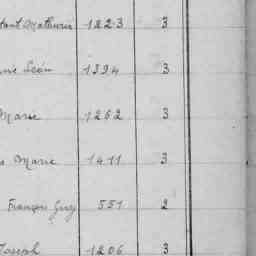 Mathurin 1223 3
Léon 1394 3
Marie 1262 3
Marie 1411 3
François Guy 551 2
Joseph 1206 3